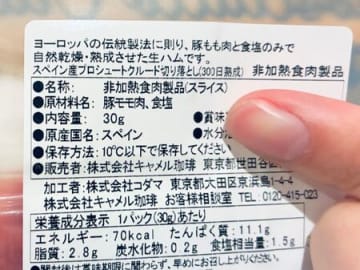 ヨーロッパの伝統製法に則り、豚もも肉と食塩のみで
自然乾燥・熟成させた生ハムです。
スペイン産プロシュートクルード切り落とし(300日熟成) 非加熱食肉製品
●名称: 非加熱食肉製品(スライス)
●原材料名: 豚モモ肉、食塩
●内容量: 30g ●賞味
●原産国名: スペイン ●水分活
●保存方法: 10℃以下で保存してください
●販売者: 株式会社キャメル珈琲 東京都世田谷
加工者: 株式会社コダマ 東京都大田区京浜島1-4-4
株式会社キャメル珈琲 お客様相談室 TEL: 0120-415-023
栄養成分表示 1パック(30g)あたり
エネルギー: 70kcal たんぱく質: 11.1g
脂質: 2.8g 炭水化物: 0.2g 食塩相当量: 1.5g
開封後は賞味期限に関わらず、早めにお召し上がりください。